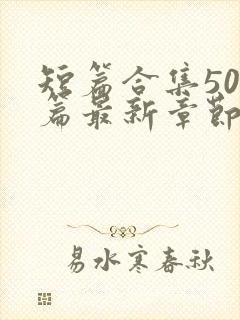 短篇合集50
篇最新章节
易水寒春秋